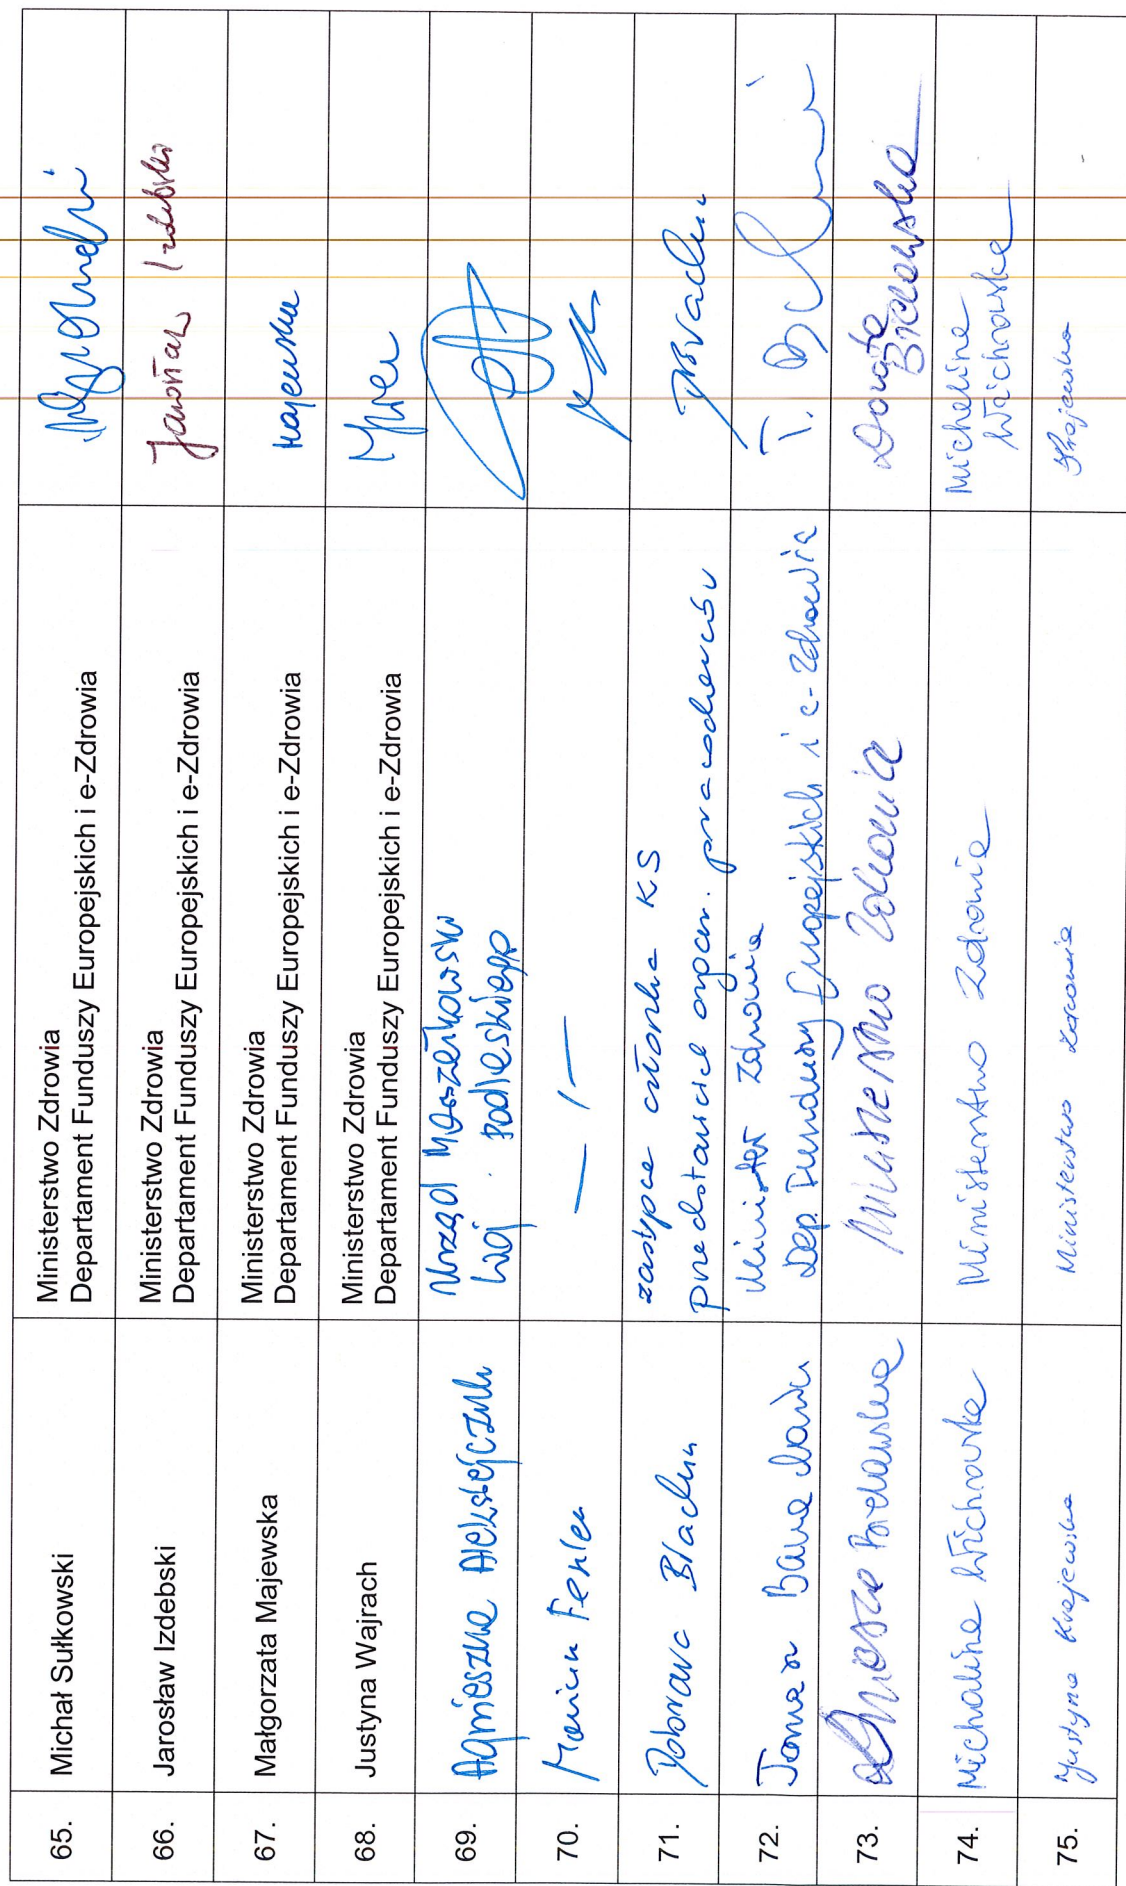 65. Michał Sułkowski Ministerstwo Zdrowia
Departament Funduszy Europejskich i e-Zdrowia
66. Jarosław Izdebski Ministerstwo Zdrowia
Departament Funduszy Europejskich i e-Zdrowia Jarosław Izdebski
67. Małgorzata Majewska Ministerstwo Zdrowia
Departament Funduszy Europejskich i e-Zdrowia Majewska
68. Justyna Wajrach Ministerstwo Zdrowia
Departament Funduszy Europejskich i e-Zdrowia
69. Agnieszka Aleksiejczuk Urząd Marszałkowski
Woj. Podlaskiego
70. Marcin — / —
71. zastępca członka KS
przedstawiciel organ. pracodawców
72. Tomasz Minister Zdrowia
Dep. Funduszy Europejskich i e-Zdrowia T.
73. Ministerstwo Zdrowia Dorota
74. Michalina Wichrowska Ministerstwo Zdrowia Michalina
Wichrowska
75. Justyna Krajewska Ministerstwo Zdrowia Krajewska